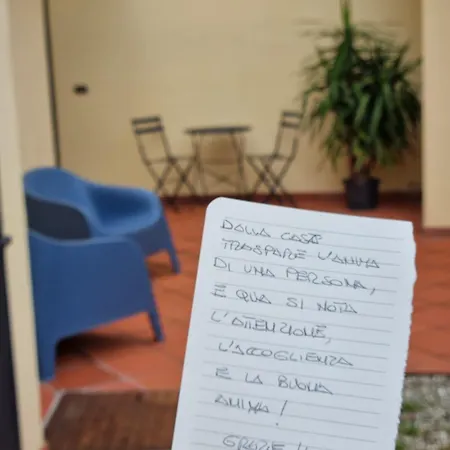 DALLA CASA
TRASPARE L'ANIMA
DI UNA PERSONA,
E QUA SI NOTA
L'ATTENZIONE,
L'ACCOGLIENZA
E LA BUONA
ANIMA!
GRAZIE!